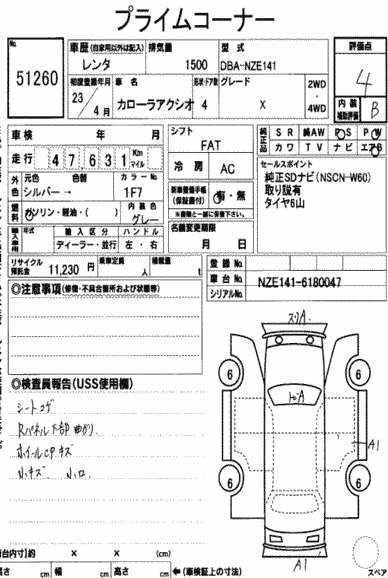 プライムコーナー
No.
51260
車歴 (自家用以外は記入) 排気量 型式
レンタ 1500 DBA-NZE141
評価点
4
初度登録年月 車名 形状・ドア数 グレード
23 / 4月 カローラアクシオ 4 X
2WD
・
4WD
内装
補助評価
B
車検 年 月
走行 47,631 Km マイル
シフト
FAT
冷房 AC
純正品 SR 純AW PS PW
カワ TV ナビ エアB
外色 元色 色替 カラーNo.
シルバー → 1F7
燃料 ガソリン・軽油・( ) 内装色 グレー
新車整備手帳
(保証書付) 有・無
※車歴と一緒に保管下さい。
セールスポイント
純正SDナビ(NSCN-W60)
取り説有
タイヤ6山
輸入車用 年式 輸入区分 ハンドル
ディーラー・並行 左・右
名義変更期限
月 日
リサイクル預託金 11,230 円 乗車定員 人 積載量 t
登録No.
車台No. NZE141-6180047
シリアルNo.
◎注意事項(修復・不具合箇所および状態等)
◎検査員報告(USS使用欄)
シートコゲ
Rパネル下部曲り
ホイールCPキズ
小キズ 小凹
スリA
トビA
6
6
6
6
A1
A1
スペア
荷台内寸 約 × × (cm)
長さ cm 幅 cm 高さ cm ←(車検証上の寸法)